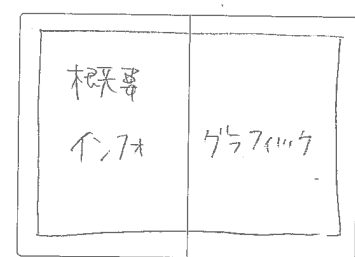 概要
インフォ グラフィック